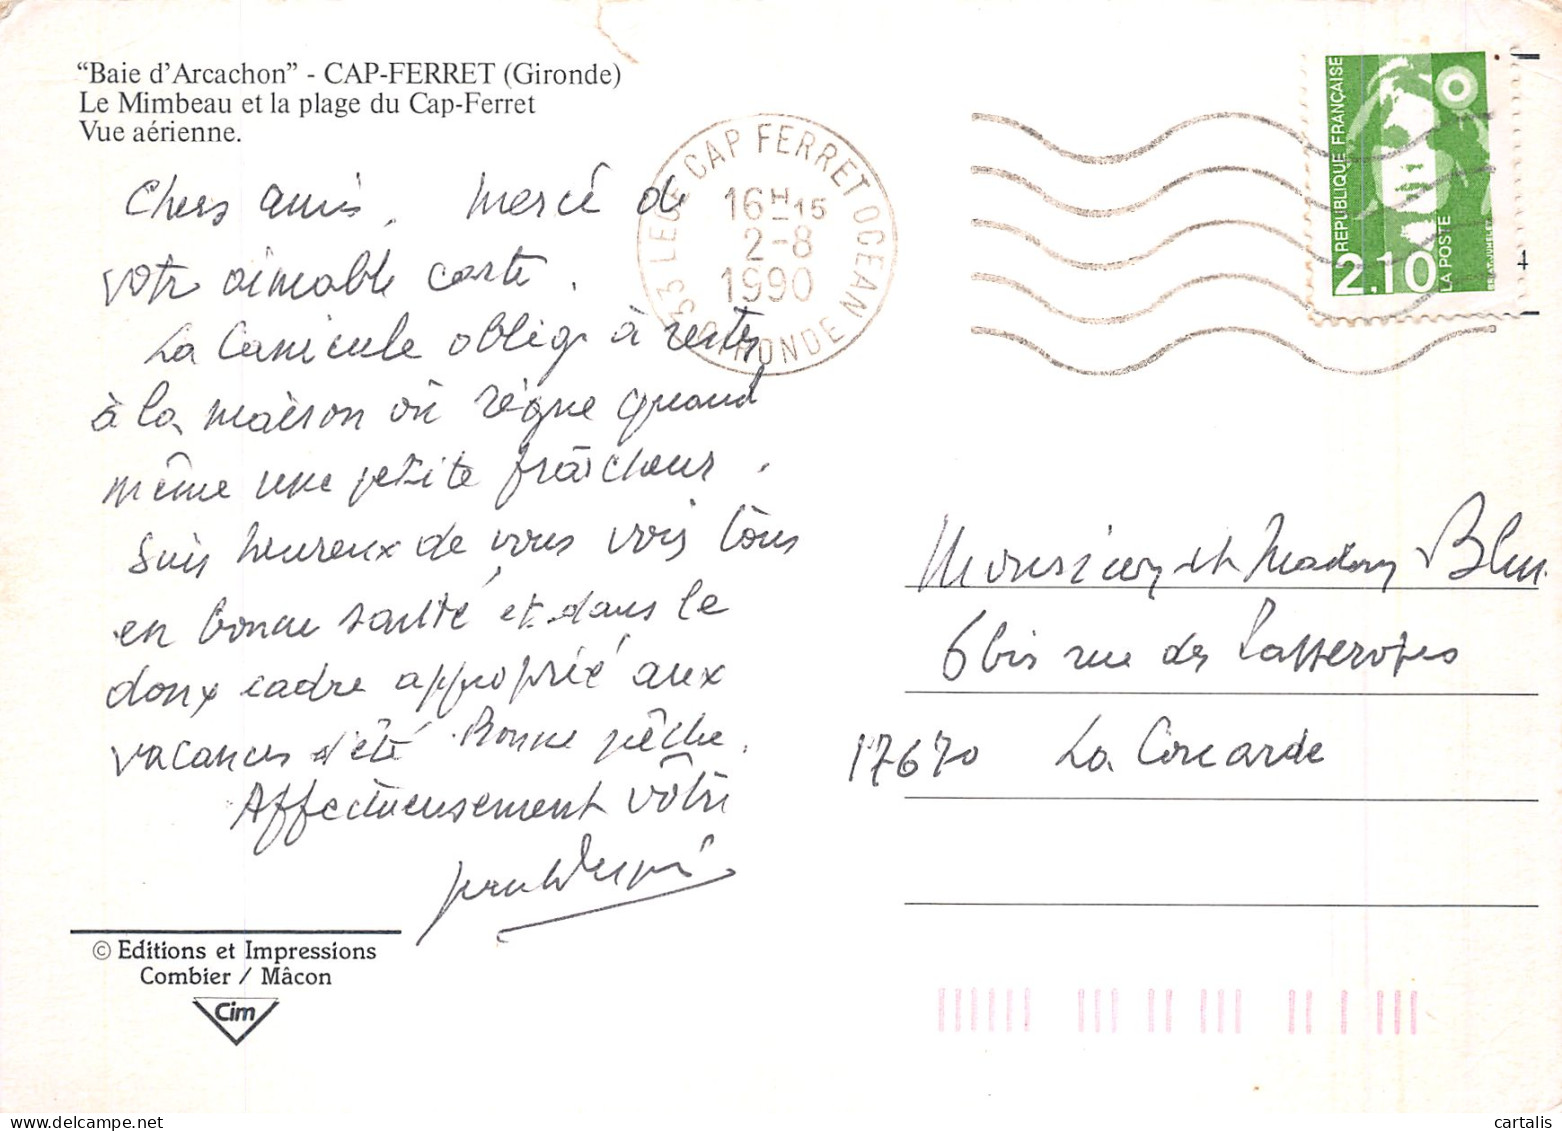 "Baie d'Arcachon" - CAP-FERRET (Gironde)
Le Mimbeau et la plage du Cap-Ferret
Vue aérienne.
Chers amis, Merci de
votre aimable carte.
La Canicule oblige à rester
à la maison où règne quand
même une petite fraîcheur.
Suis heureux de vous voir tous
en bonne santé et dans le
doux cadre approprié aux
vacances d'été. Bonne pêche.
Affectueusement vôtre
© Editions et Impressions
Combier / Mâcon
Cim
33 LEGE CAP FERRET OCEAN
GIRONDE
16H15
2-8
1990
REPUBLIQUE FRANÇAISE
2,10
LA POSTE
4
Monsieur et Madame
6 bis rue des
17670 La Couarde
cartalis
www.delcampe.net